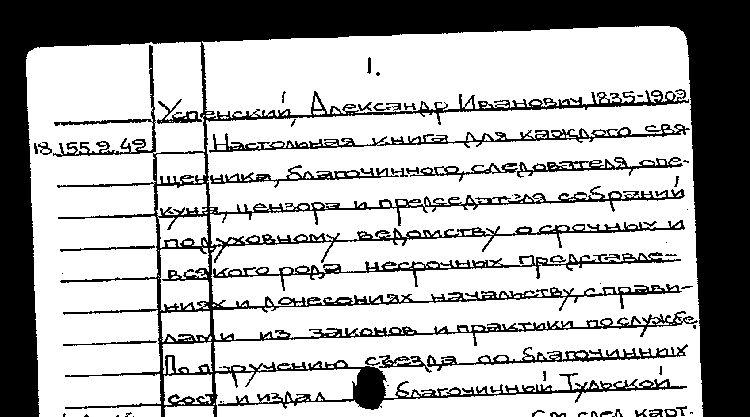 1.
Успенский, Александр Иванович, 1835-1902
18.155.9.49 Настольная книга для каждого свя-
щенника, благочинного, следователя, опе-
куна, цензора и председателя собраний
по духовному ведомству о срочных и
всякого рода несрочных представле-
ниях и донесениях начальству, с прави-
лами из законов и практики по службе.
По поручению съезда оо. благочинных
сост. и издал благочинный Тульской
См. след. карт.